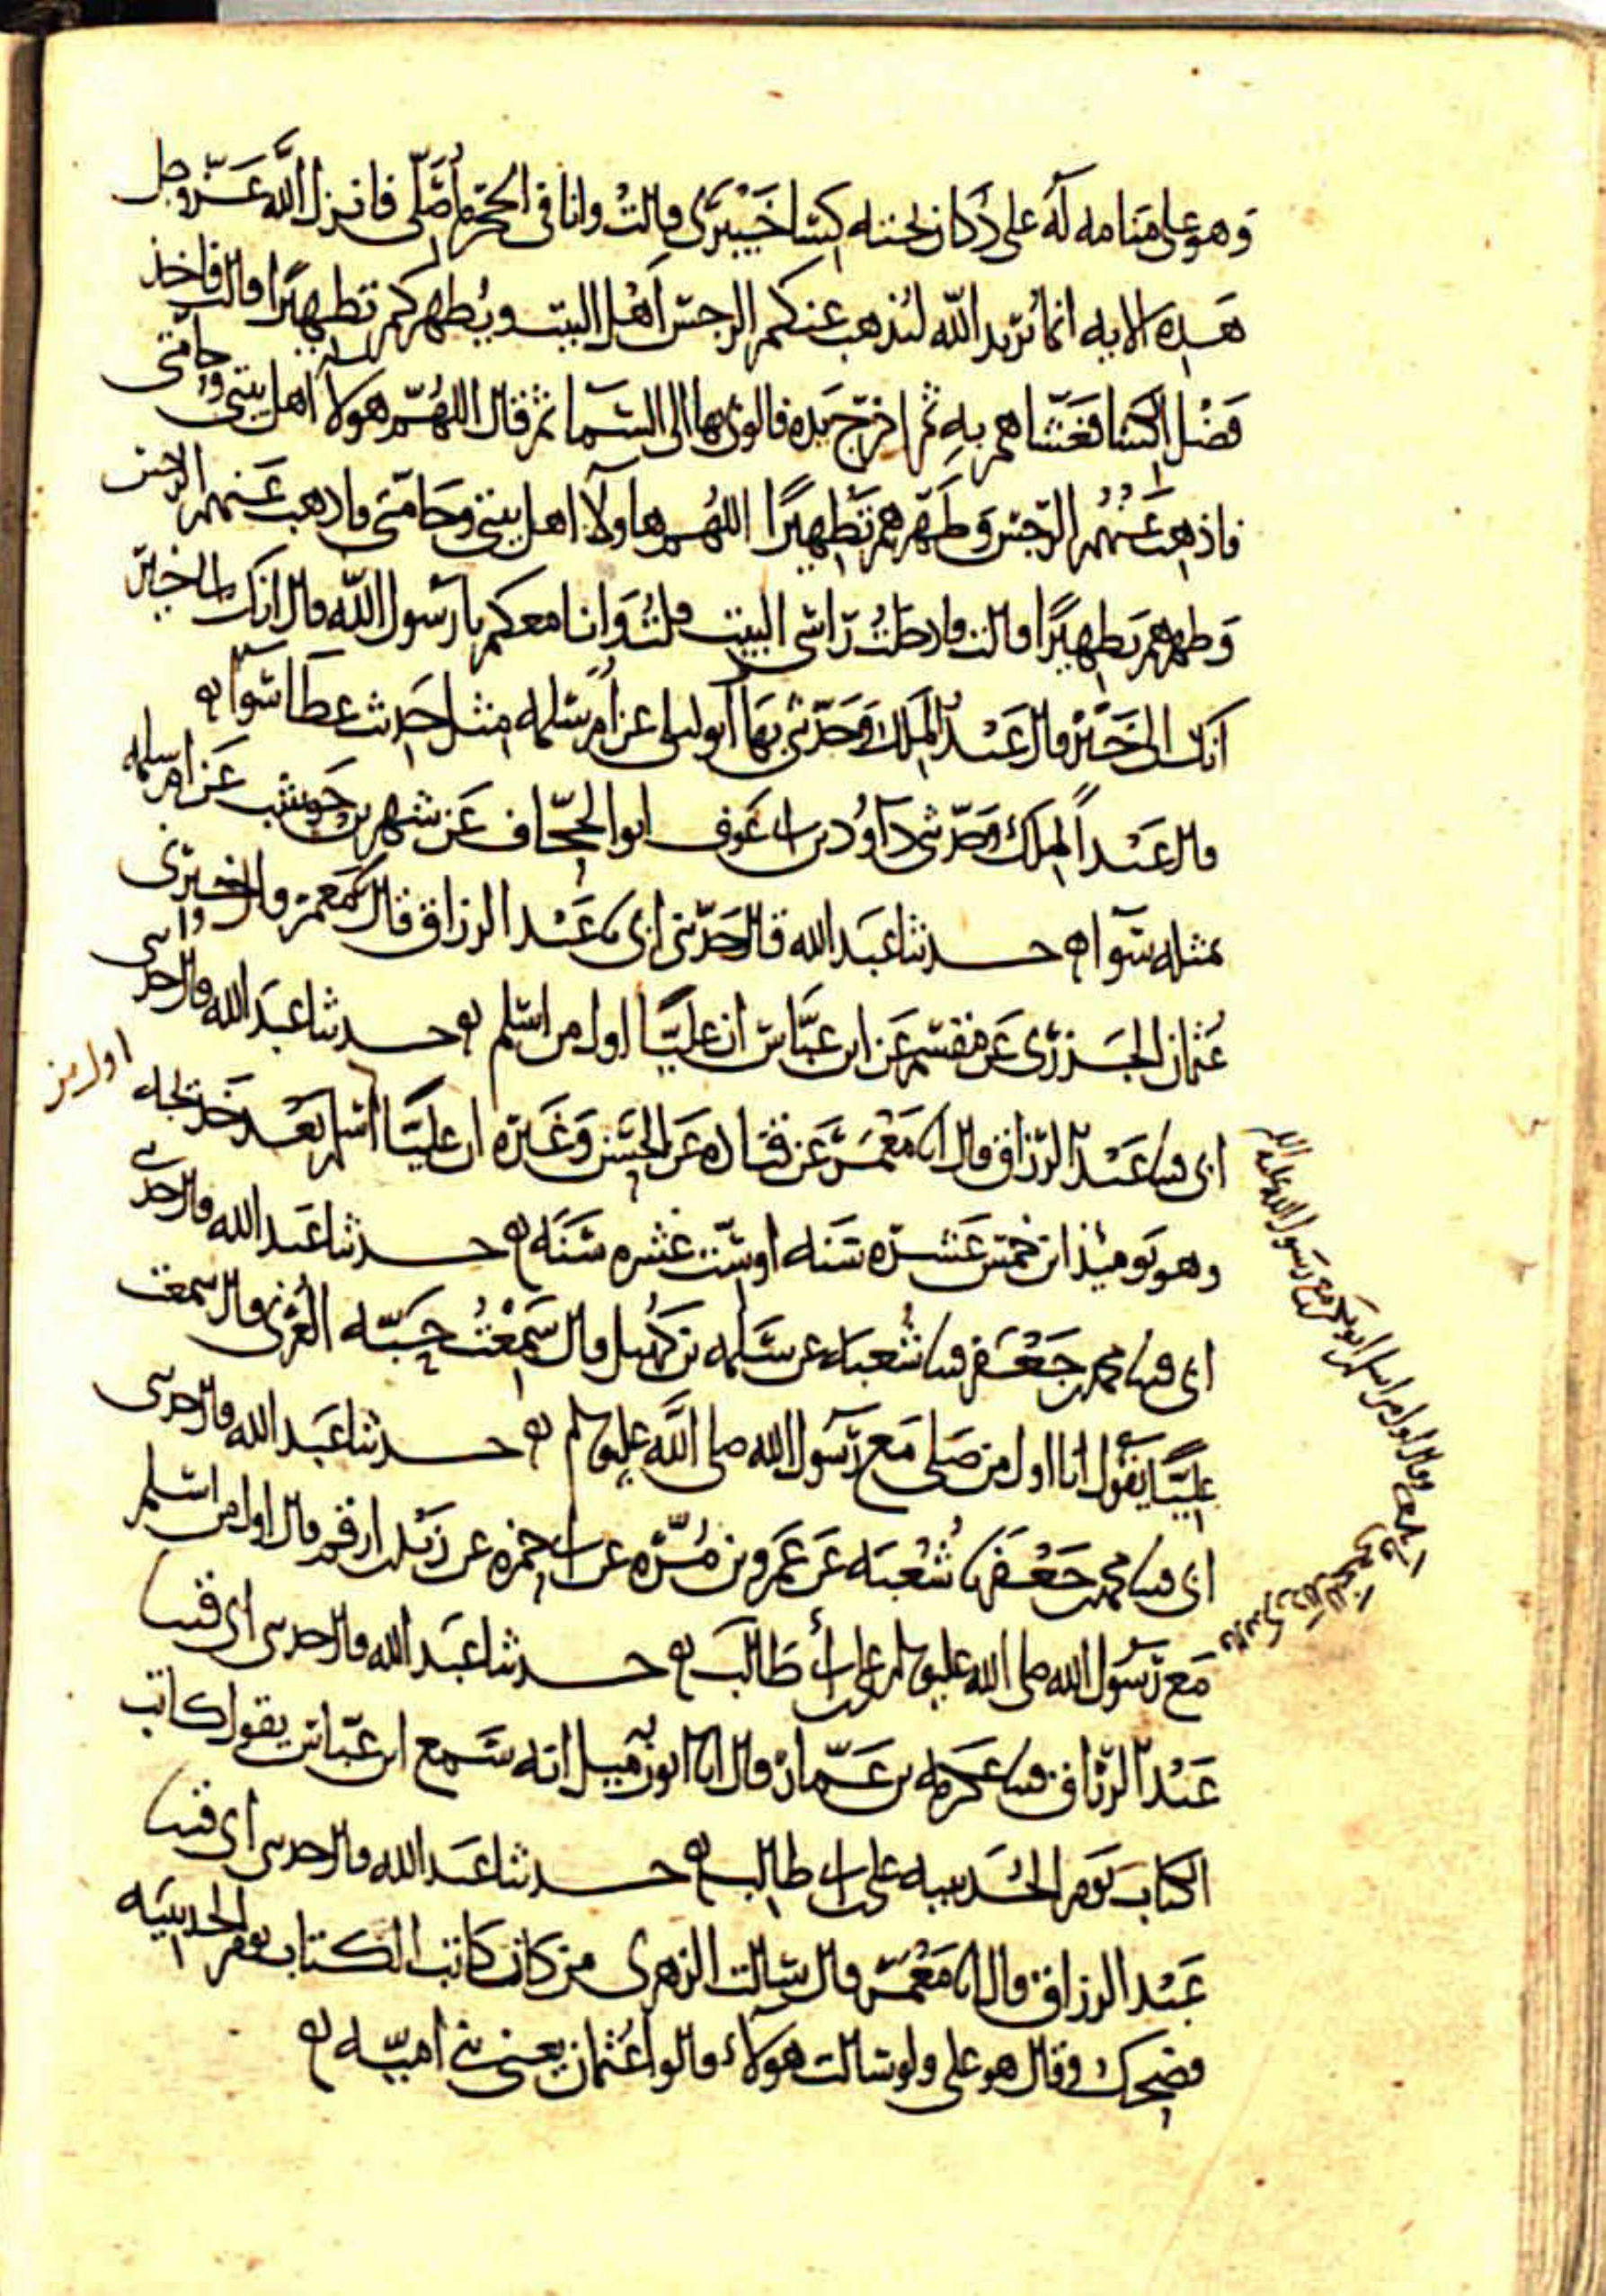 وهو على منامه له على دكان تحته كسا خيبرى قالت وانا فى الحجره اصلى فانزل الله عز وجل
هذه الايه انما يريد الله ليذهب عنكم الرجس اهل البيت ويطهركم تطهيرا قالت فاخذ
فضل الكسا فغشاهم به ثم اخرج يده فالوى بها الى السما ثم قال اللهم هولا اهل بيتى وحامتى
فاذهب عنهم الرجس وطهرهم تطهيرا اللهم هاولا اهل بيتى وحامتى فاذهب عنهم الرجس
وطهرهم تطهيرا قالت فادخلت راسى البيت فقلت وانا معكم يا رسول الله قال انك الى خير
انك الى خير قال عبد الملك وحدثنى بها ابو ليلى عن ام سلمه مثل حديث عطا سوا
قال عبد الملك وحدثنى داود بن ابى عوف ابو الجحاف عن شهر بن حوشب عن ام سلمه
بمثله سوا حدثنا عبد الله قال حدثنى ابى نا عبد الرزاق قال معمر واخبرنى
عثمان الجزرى عن مقسم عن ابن عباس ان عليا اول من اسلم حدثنا عبد الله قال حدثنى
ابى قثنا عبد الرزاق قال انا معمر عن قتاده عن الحسن وغيره ان عليا اسلم بعد خديجه
اول من
وهو يوميذ ابن خمس عشره سنه او ست عشره سنه حدثنا عبد الله قال حدثنى
ابى قثنا محمد بن جعفر قثنا شعبه عن سلمه بن كهيل قال سمعت حبه العرنى قال سمعت
عليا يقول انا اول من صلى مع رسول الله صلى الله عليه وسلم حدثنا عبد الله قال حدثنى
ابى قثنا محمد بن جعفر نا شعبه عن عمرو بن مره عن ابى حمزه عن زيد بن ارقم قال اول من اسلم
مع رسول الله صلى الله عليه وسلم على بن ابى طالب حدثنا عبد الله قال حدثنى ابى قثنا
عبد الرزاق قثنا عكرمه بن عمار قال انا ابو زميل انه سمع ابن عباس يقول كاتب
الكتاب يوم الحديبيه على بن ابى طالب حدثنا عبد الله قال حدثنى ابى قثنا
عبد الرزاق قال انا معمر قال سالت الزهرى من كان كاتب الكتاب يوم الحديبيه
فضحك وقال هو على ولو سالت هولاء قالوا عثمان يعنى بنى اميه
النخعى وقال اول من اسلم ابو بكر مع رسول الله صلى الله عليه